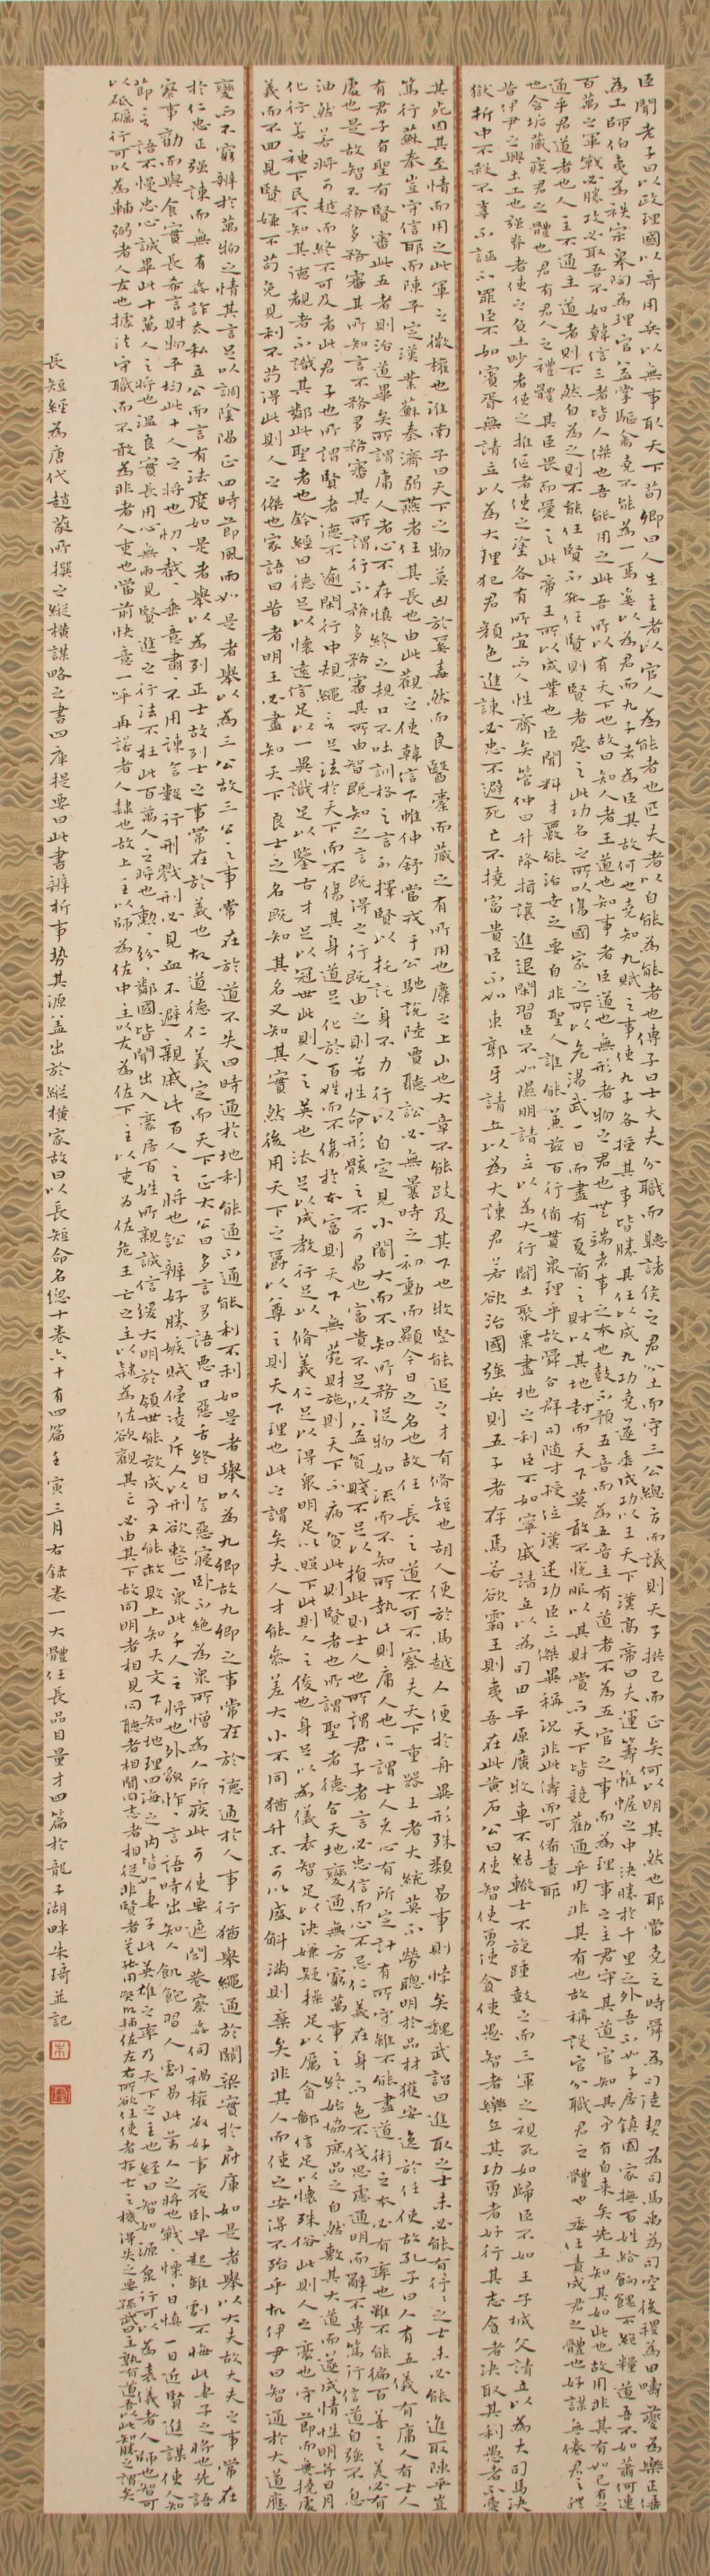 臣聞老子曰以政理國以奇用兵以無事取天下荀卿曰人主者以官人為能者也匹夫者以自能為能者也傅子曰士大夫分職而聽諸侯之君分土而守三公總方而議則天子拱己而正矣何以明其然也耶當堯之時舜為司徒契為司馬禹為司空後稷為田疇夔為樂正倕
為工師伯夷為秩宗皋陶為理官益掌驅禽堯不能為一焉奚以為君而九子者為臣其故何也堯知九賦之事使九子各授其事皆勝其任以成九功堯遂乘成功以王天下漢高帝曰夫運籌帷幄之中決勝於千里之外吾不如子房鎮國家撫百姓給餉餽不絕糧道吾不如蕭何連
百萬之軍戰必勝攻必取吾不如韓信三者皆人傑也吾能用之此吾所以有天下也故曰知人者王道也知事者臣道也無形者物之君也無端者事之本也鼓不預五音而為五音主有道者不為五官之事而為理事之主君守其道官知其事有自來矣先王知其如此也故用非其有如己有之
通乎君道者也人主不通主道者則不然自為之則不能任賢不能任賢則賢者惡之此功名之所以傷國家之所以危湯武一日而盡有夏商之財以其地封而天下莫敢不悅服以其財賞而天下皆競勸通乎用非其有也故稱設官分職君之體也委任責成君之體也好謀無倦君之體
也含垢藏疾君之體也君有君人之禮體其臣畏而愛之此帝王所以成業也臣聞料才覈能治世之要自非聖人誰能兼茲百行備貫眾理乎故舜合群司隨才授位漢述功臣三傑異稱況非此儔而可備責耶
昔伊尹之興土工也強脊者使之負土眇者使之推傴者使之塗各有所宜而人性齊矣管仲曰升降揖讓進退閑習臣不如隰朋請立以為大行闢土聚粟盡地之利臣不如甯戚請立以為司田平原廣牧車不結轍士不旋踵鼓之而三軍之視死如歸臣不如王子城父請立以為大司馬決
獄折中不殺不辜不誣不罪臣不如賓胥無請立以為大理犯君顏色進諫必忠不避死亡不撓富貴臣不如東郭牙請立以為大諫君若欲治國強兵則五子者存焉若欲霸王則夷吾在此黃石公曰使智使勇使貪使愚智者樂立其功勇者好行其志貪者決取其利愚者不愛
其死因其至情而用之此軍之微權也淮南子曰天下之物莫凶於奚毒然而良醫橐而藏之有所用也麋之上山也大章不能跂及其下也牧豎能追之才有脩短也胡人便於馬越人便於舟異形殊類易事則悖矣魏武詔曰進取之士未必能有行有行之士未必能進取陳平豈
篤行蘇秦豈守信耶而陳平定漢業蘇秦濟弱燕者任其長也由此觀之使韓信下帷仲舒當戎于公馳說陸賈聽訟必無曩時之勳而顯今日之名也故任長之道不可不察夫天下重器王者大統莫不勞聰明於品材獲安逸於任使故孔子曰人有五儀有庸人有士人
有君子有聖有賢審此五者則治道畢矣所謂庸人者心不存慎終之規口不吐訓格之言不擇賢以托其身不力行以自定見小闇大而不知所務從物如流而不知所執此則庸人也所謂士人者心有所定計有所守雖不能盡道術之本必有率也雖不能徧百善之美必有
處也是故智不務多務審其所知言不務多務審其所謂行不務多務審其所由智既知之言既得之行既由之則若性命形骸之不可易也富貴不足以益貧賤不足以損此則士人也所謂君子者言必忠信而心不忌仁義在身而色不伐思慮通明而辭不專篤行信道自強不息
油然若將可越而終不可及者此君子也所謂賢者德不逾閑行中規繩言足法於天下而不傷其身道足化於百姓而不傷於本富則天下無菀財施則天下不病貧此則賢者也所謂聖者德合天地變通無方窮萬事之終始協庶品之自然敷其大道而遂成情性明并日月
化行若神下民不知其德覩者不識其鄰此聖者也鈐經曰德足以懷遠信足以一異識足以鑒古才足以冠世此則人之英也法足以成教行足以脩義仁足以得眾明足以照下此則人之俊也身足以為儀表智足以決嫌疑操足以厲貪鄙信足以懷殊俗此則人之豪也守節而無撓處
義而不回見賢嫌不苟免見利不苟得此則人之傑也家語曰昔者明王必盡知天下良士之名既知其名又知其實然後用天下之爵以尊之則天下理也此之謂矣夫人才能參差大小不同猶升不可以盛斛滿則棄矣非其人而使之安得不殆乎故伊尹曰智通於大道應
變而不窮辨於萬物之情其言足以調陰陽正四時節風雨如是者舉以為三公故三公之事常在於道不失四時通於地利能通不通能利不利如是者舉以為九卿故九卿之事常在於德通於人事行猶舉繩通於關梁實於府庫如是者舉以大夫故大夫之事常在
於仁忠正強諫而無有姦詐去私立公而言有法度如是者舉以為列士故列士之事常在於義也故道德仁義定而天下正太公曰多言多語惡口惡舌終日言惡寢臥不絕為眾所憎為人所疾此可使要遮閭巷察姦伺禍權數好事夜臥早起雖劇不悔此妻子之將也先語
察事勸而與食實長希言財物平均此十人之將也忉忉截截垂意肅肅不用諫言數行刑戮刑必見血不避親戚此百人之將也訟辨好勝嫉賊侵凌斥人以刑欲整一眾此千人之將也外貌怍怍言語時出知人飢飽習人劇易此萬人之將也戰戰慄慄日慎一日近賢進謀使人知
節言語不慢忠心誠畢此十萬人之將也溫良實長用心無兩見賢進之行法不枉此百萬人之將也勳勳紛紛鄰國皆聞出入豪居百姓所親誠信緩大明於領世能效成事又能救敗上知天文下知地理四海之內皆如妻子此英雄之率乃天下之主也經曰智如源泉行可以為表儀者人師也智可
以砥礪行可以為輔弼者人友也據法守職而不敢為非者人吏也當前快意一呼再諾者人隸也故上主以師為佐中主以友為佐下主以吏為佐危亡之主以隸為佐欲觀其亡必由其下故同明者相見同聽者相聞同志者相從非賢者莫能用賢故輔佐左右所欲任使者存亡之機得失之要孫武曰主孰有道吾以此知勝之謂矣
長短經為唐代趙蕤所撰之縱橫謀略之書四庫提要曰此書辨析事勢其源蓋出於縱橫家故曰以長短命名總十卷六十有四篇壬寅三月右錄卷一大體任長品目量才四篇於龍子湖畔朱琦並記